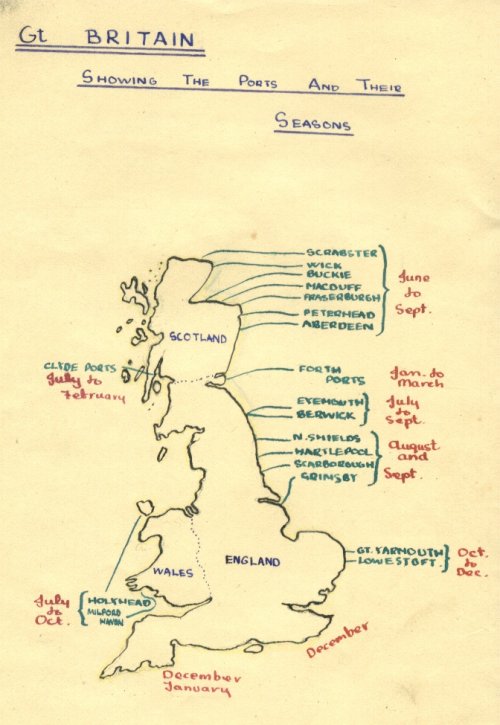 Gt BRITAIN
SHOWING THE PORTS AND THEIR
SEASONS
SCRABSTER
WICK
BUCKIE
MACDUFF
FRASERBURGH
PETERHEAD
ABERDEEN
June
to
Sept.
SCOTLAND
CLYDE PORTS
July to
February
FORTH
PORTS
Jan. to
March
EYEMOUTH
BERWICK
July
to
Sept.
N. SHIELDS
HARTLEPOOL
SCARBOROUGH
GRIMSBY
August
and
Sept.
GT. YARMOUTH
LOWESTOFT
Oct.
to
Dec.
ENGLAND
WALES
HOLYHEAD
MILFORD
HAVEN
July
to
Oct.
December
December
January